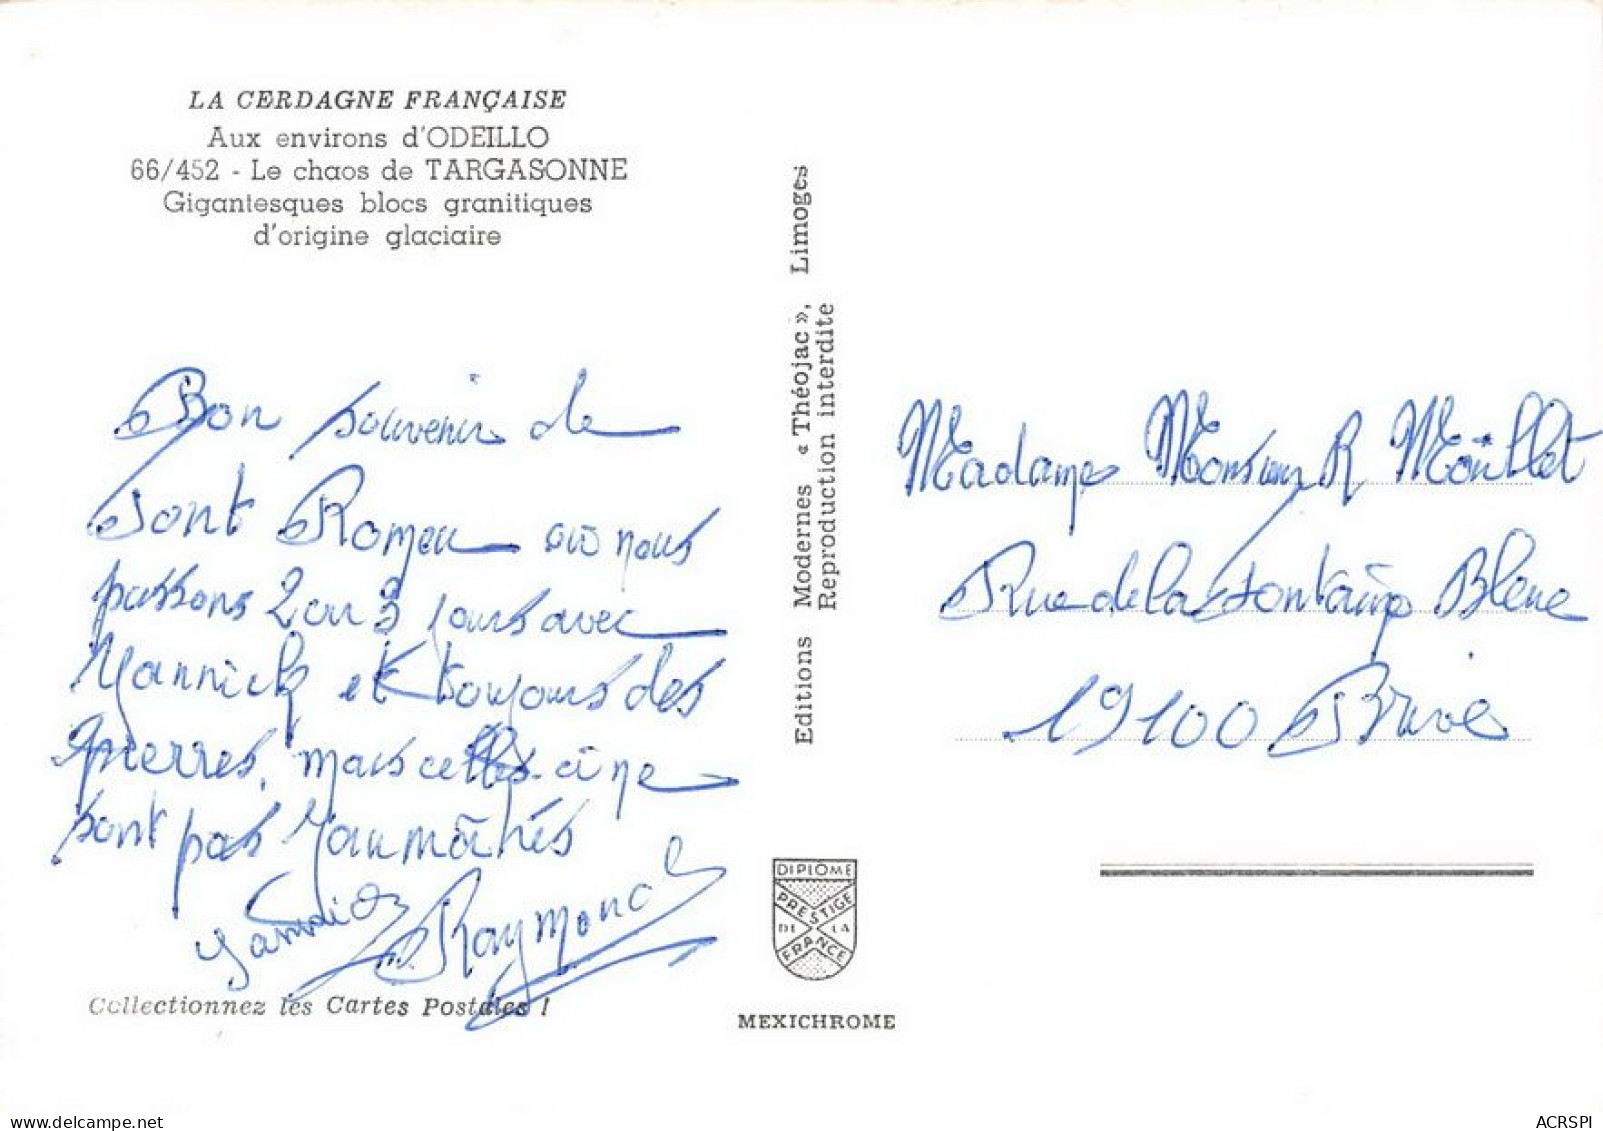 LA CERDAGNE FRANÇAISE
Aux environs d'ODEILLO
66/452 - Le chaos de TARGASONNE
Gigantesques blocs granitiques
d'origine glaciaire
Bon souvenir de
Font Romeu où nous
passons 2 ou 3 jours avec
Yannick et toujours des
pierres, mais celles-ci ne
sont pas
Yannick Raymond
Collectionnez les Cartes Postales !
Editions Modernes « Théojac », Limoges
Reproduction interdite
DIPLÔME
PRESTIGE
DE LA
FRANCE
MEXICHROME
Madame Monsieur R
Rue de la Fontaine Bleue
19100 Brive
delcampe.net
ACRSPI